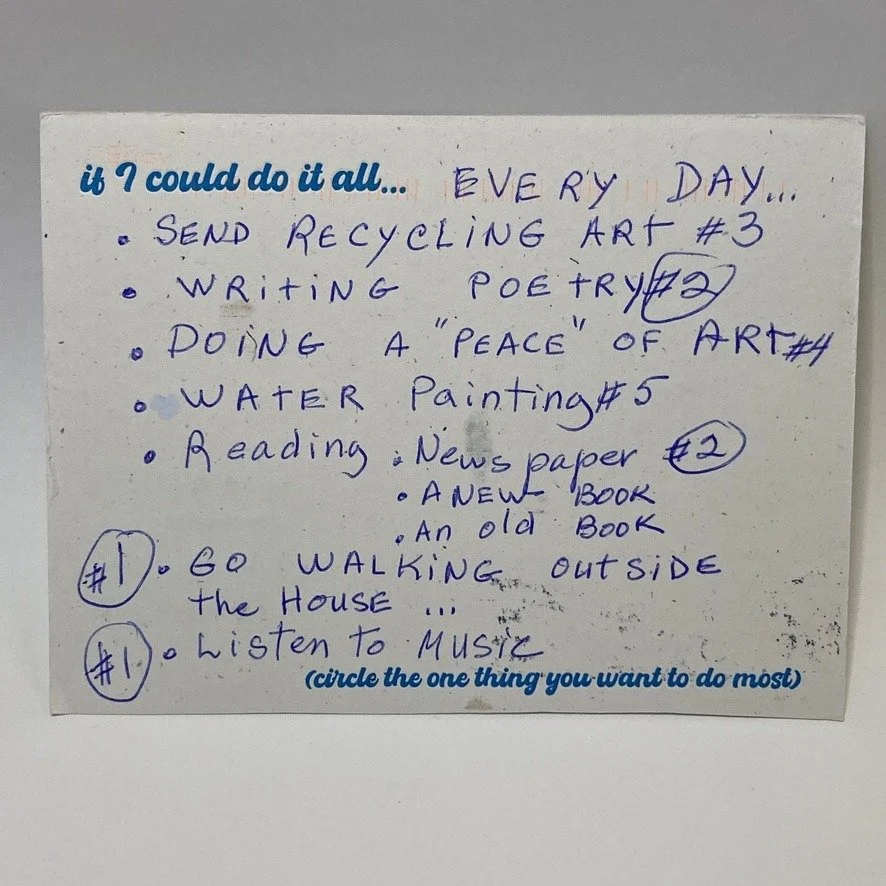 if I could do it all... EVERY DAY...
• SEND RECYCLING ART #3
• WRITING POETRY #2
• DOING A "PEACE" OF ART #4
• WATER Painting #5
• Reading : Newspaper #2
• A NEW BOOK
• An old BOOK
#1 • GO WALKING OUTSIDE
the HOUSE ...
#1 • Listen to MUSIC
(circle the one thing you want to do most)